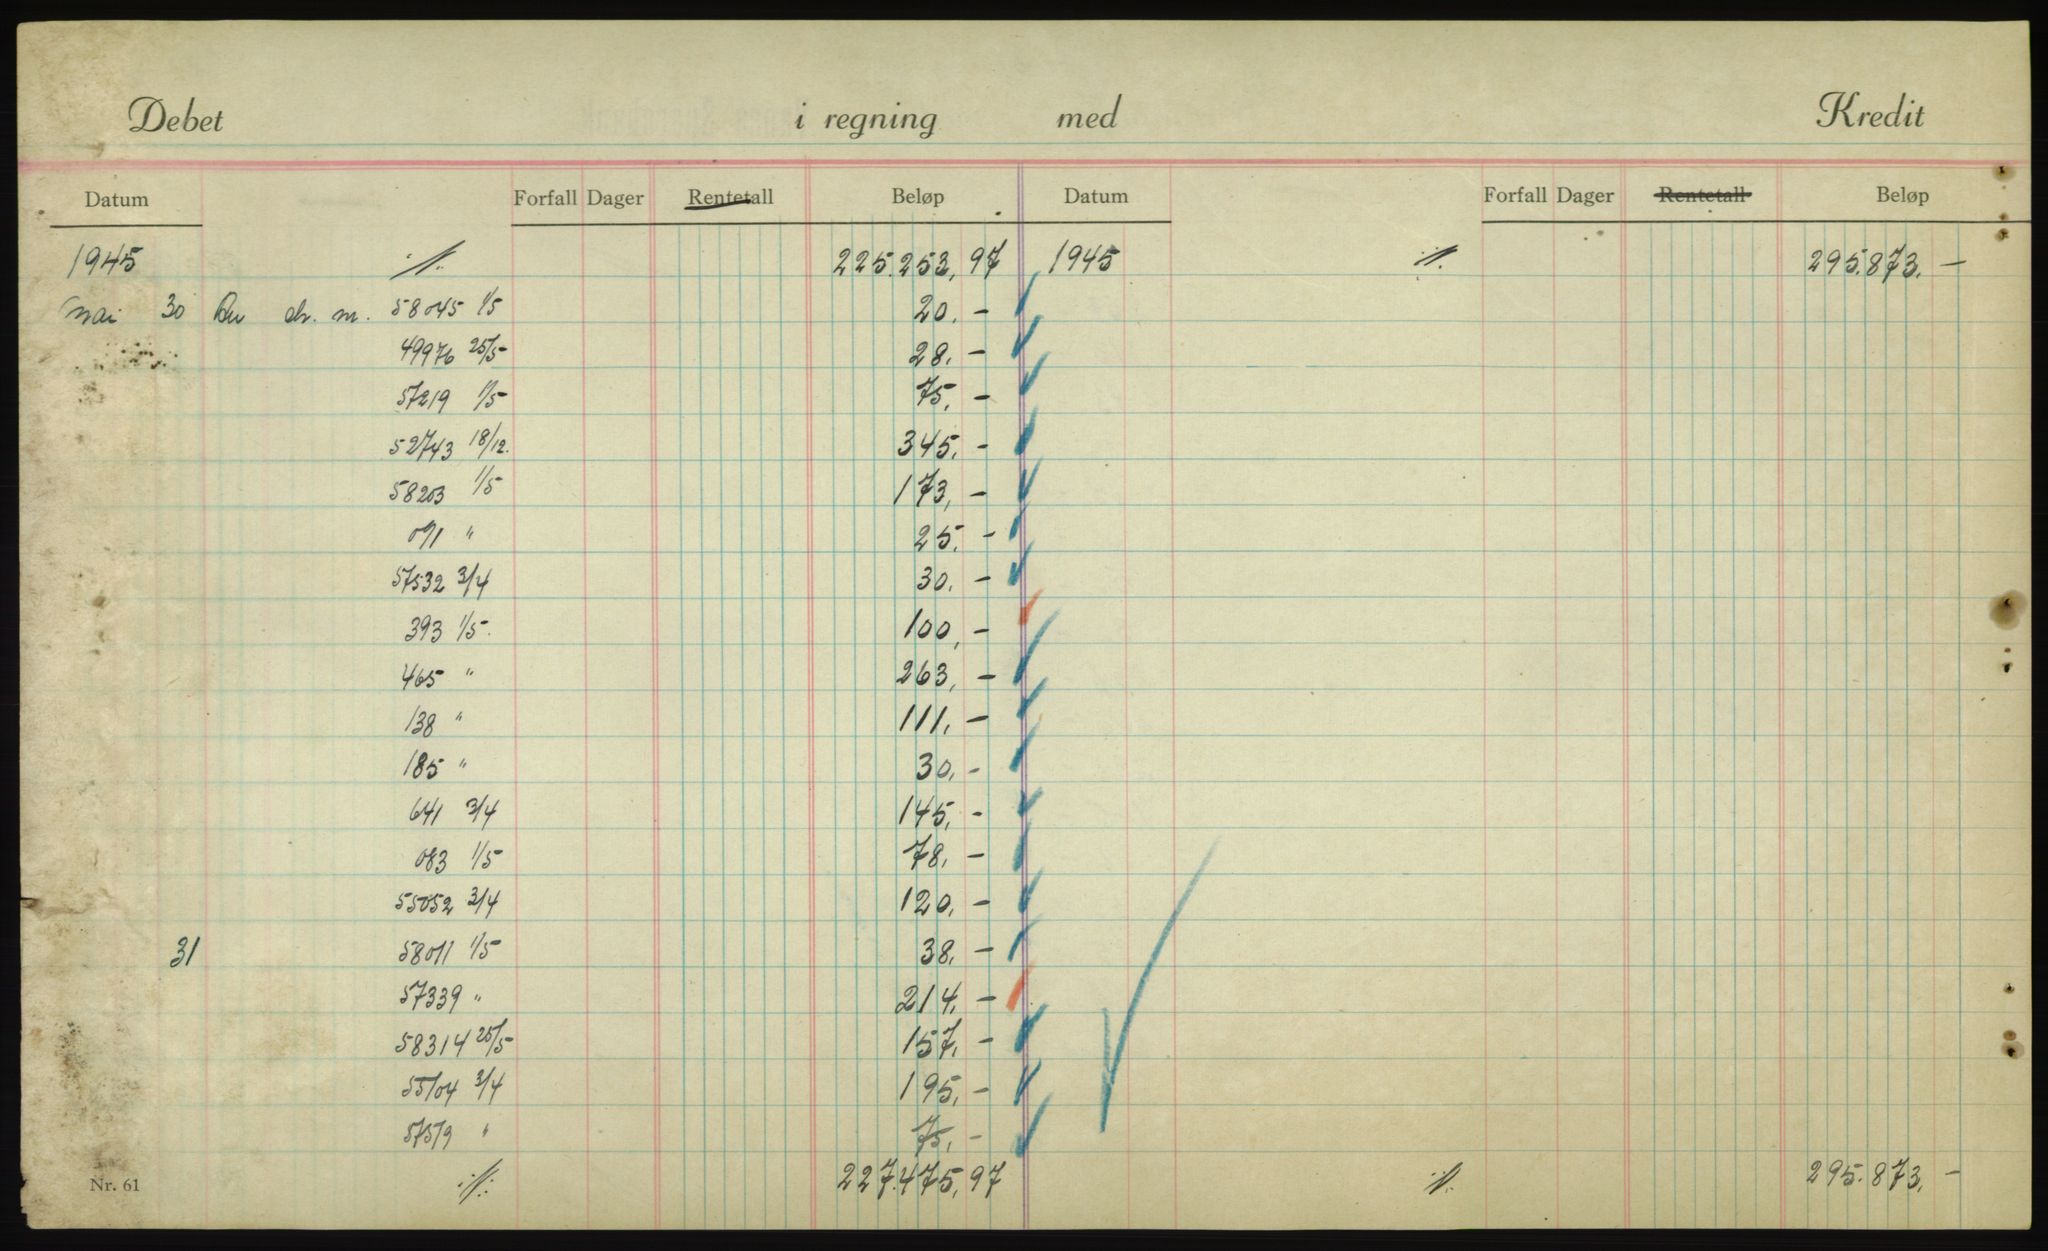 Debet i regning med Kredit
Datum Forfall Dager Rentetall Beløp Datum Forfall Dager Rentetall Beløp
1945 ·/. 225.253,97 1945 ·/. 295.873.—
mai 30 58045 1/5 20.—
49976 25/5 28.—
57219 1/5 75.—
52743 18/12. 345.—
58203 1/5 173,—
091 " 25.—
57532 3/4 30.—
393 1/5. 100,—
465 " 263,—
138 " 111.—
185 " 30.—
641 3/4 145.—
083 1/5 78.—
55052 3/4 120.—
31 58011 1/5 38.—
57339 " 214.—
58314 25/5 157.—
55104 3/4 195.—
57519 " 75.—
Nr. 61 ·/. 227.475,97 ·/. 295.873.—